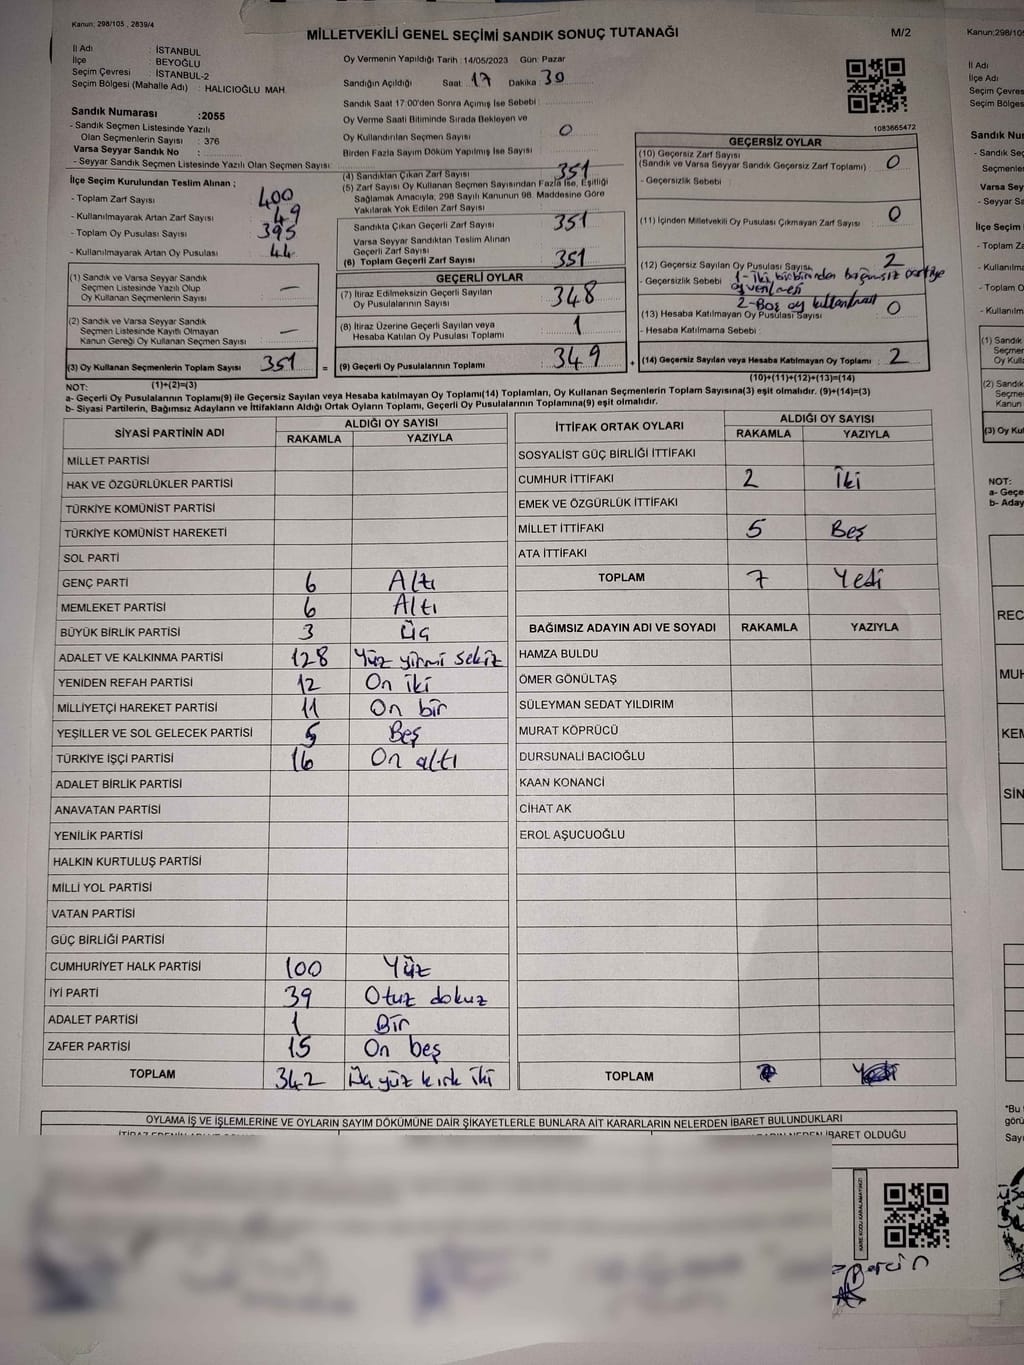 Kanun: 298/105 , 2839/4
MİLLETVEKİLİ GENEL SEÇİMİ SANDIK SONUÇ TUTANAĞI
M/2
İl Adı : İSTANBUL
İlçe : BEYOĞLU
Seçim Çevresi : İSTANBUL-2
Seçim Bölgesi (Mahalle Adı) : HALICIOĞLU MAH.
Sandık Numarası :2055
- Sandık Seçmen Listesinde Yazılı
Olan Seçmenlerin Sayısı : 376
Varsa Seyyar Sandık No :
- Seyyar Sandık Seçmen Listesinde Yazılı Olan Seçmen Sayısı:
Oy Vermenin Yapıldığı Tarih : 14/05/2023 Gün: Pazar
Sandığın Açıldığı Saat 17 Dakika 30
Sandık Saat 17:00'den Sonra Açımış İse Sebebi :
Oy Verme Saati Bitiminde Sırada Bekleyen ve
Oy Kullandırılan Seçmen Sayısı 0
Birden Fazla Sayım Döküm Yapılmış İse Sayısı
1083665472
İlçe Seçim Kurulundan Teslim Alınan ;
- Toplam Zarf Sayısı 400
- Kullanılmayarak Artan Zarf Sayısı 49
- Toplam Oy Pusulası Sayısı 395
- Kullanılmayarak Artan Oy Pusulası 44
(1) Sandık ve Varsa Seyyar Sandık
Seçmen Listesinde Yazılı Olup
Oy Kullanan Seçmenlerin Sayısı —
(2) Sandık ve Varsa Seyyar Sandık
Seçmen Listesinde Kayıtlı Olmayan
Kanun Gereği Oy Kullanan Seçmen Sayısı —
(3) Oy Kullanan Seçmenlerin Toplam Sayısı 351 =
(4) Sandıktan Çıkan Zarf Sayısı 351
(5) Zarf Sayısı Oy Kullanan Seçmen Sayısından Fazla İse, Eşitliği
Sağlamak Amacıyla, 298 Sayılı Kanunun 98. Maddesine Göre
Yakılarak Yok Edilen Zarf Sayısı
Sandıkta Çıkan Geçerli Zarf Sayısı 351
Varsa Seyyar Sandıktan Teslim Alınan
Geçerli Zarf Sayısı
(6) Toplam Geçerli Zarf Sayısı 351
GEÇERLİ OYLAR
(7) İtiraz Edilmeksizin Geçerli Sayılan
Oy Pusulalarının Sayısı 348
(8) İtiraz Üzerine Geçerli Sayılan veya
Hesaba Katılan Oy Pusulası Toplamı 1
(9) Geçerli Oy Pusulalarının Toplamı 349 +
GEÇERSİZ OYLAR
(10) Geçersiz Zarf Sayısı
(Sandık ve Varsa Seyyar Sandık Geçersiz Zarf Toplamı) 0
- Geçersizlik Sebebi :
(11) İçinden Milletvekili Oy Pusulası Çıkmayan Zarf Sayısı 0
(12) Geçersiz Sayılan Oy Pusulası Sayısı 2
- Geçersizlik Sebebi 1- İki birbirinden bağımsız partiye
oy verilmesi
2- Boş oy kullanılması
(13) Hesaba Katılmayan Oy Pusulası Sayısı 0
- Hesaba Katılmama Sebebi :
(14) Geçersiz Sayılan veya Hesaba Katılmayan Oy Toplamı : 2
NOT: (1)+(2)=(3)
(10)+(11)+(12)+(13)=(14)
a- Geçerli Oy Pusulalarının Toplamı(9) ile Geçersiz Sayılan veya Hesaba Katılmayan Oy Toplamı(14) Toplamları, Oy Kullanan Seçmenlerin Toplam Sayısına(3) eşit olmalıdır. (9)+(14)=(3)
b- Siyasi Partilerin, Bağımsız Adayların ve İttifakların Aldığı Ortak Oyların Toplamı, Geçerli Oy Pusulalarının Toplamına(9) eşit olmalıdır.
SİYASİ PARTİNİN ADI ALDIĞI OY SAYISI
RAKAMLA YAZIYLA
MİLLET PARTİSİ
HAK VE ÖZGÜRLÜKLER PARTİSİ
TÜRKİYE KOMÜNİST PARTİSİ
TÜRKİYE KOMÜNİST HAREKETİ
SOL PARTİ
GENÇ PARTİ 6 Altı
MEMLEKET PARTİSİ 6 Altı
BÜYÜK BİRLİK PARTİSİ 3 Üç
ADALET VE KALKINMA PARTİSİ 128 Yüz yirmi sekiz
YENİDEN REFAH PARTİSİ 12 On iki
MİLLİYETÇİ HAREKET PARTİSİ 11 On bir
YEŞİLLER VE SOL GELECEK PARTİSİ 5 Beş
TÜRKİYE İŞÇİ PARTİSİ 16 On altı
ADALET BİRLİK PARTİSİ
ANAVATAN PARTİSİ
YENİLİK PARTİSİ
HALKIN KURTULUŞ PARTİSİ
MİLLİ YOL PARTİSİ
VATAN PARTİSİ
GÜÇ BİRLİĞİ PARTİSİ
CUMHURİYET HALK PARTİSİ 100 Yüz
İYİ PARTİ 39 Otuz dokuz
ADALET PARTİSİ 1 Bir
ZAFER PARTİSİ 15 On beş
TOPLAM 342 Üç yüz kırk iki
İTTİFAK ORTAK OYLARI ALDIĞI OY SAYISI
RAKAMLA YAZIYLA
SOSYALİST GÜÇ BİRLİĞİ İTTİFAKI
CUMHUR İTTİFAKI 2 İki
EMEK VE ÖZGÜRLÜK İTTİFAKI
MİLLET İTTİFAKI 5 Beş
ATA İTTİFAKI
TOPLAM 7 Yedi
BAĞIMSIZ ADAYIN ADI VE SOYADI RAKAMLA YAZIYLA
HAMZA BULDU
ÖMER GÖNÜLTAŞ
SÜLEYMAN SEDAT YILDIRIM
MURAT KÖPRÜCÜ
DURSUNALİ BACIOĞLU
KAAN KONANCİ
CİHAT AK
EROL AŞUCUOĞLU
TOPLAM
OYLAMA İŞ VE İŞLEMLERİNE VE OYLARIN SAYIM DÖKÜMÜNE DAİR ŞİKAYETLERLE BUNLARA AİT KARARLARIN NELERDEN İBARET BULUNDUKLARI
İBARET OLDUĞU
Kanun:298/10
İl Adı
İlçe Adı
Seçim Çevres
Seçim Bölges
Sandık Nu
- Sandık Seç
Seçmenle
Varsa Sey
- Seyyar Sa
İlçe Seçim
- Toplam Za
- Kullanılma
- Toplam O
- Kullanılm
(1) Sandık
Seçmer
Oy Kull
(2) Sandık
Seçme
Kanun
(3) Oy Kul
NOT:
a- Geçe
b- Aday
REC
MUH
KEM
SİN
"Bu
görü
Sayı